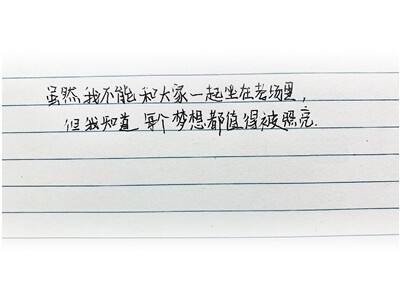 虽然我不能和大家一起坐在考场里，
但我知道 每个梦想都值得被照亮.